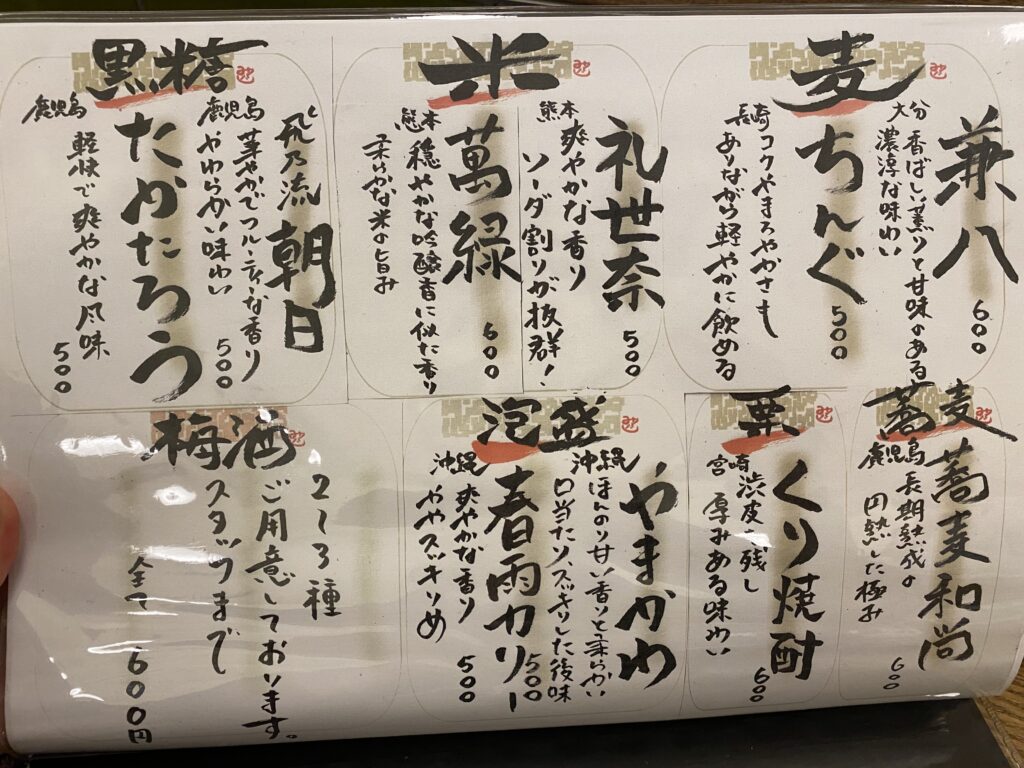 麦
兼八
大分
香ばしい薫りと甘味のある
濃淳な味わい
600
ちんぐ
長崎
コクやまろやかさも
ありながら軽やかに飲める
500
米
礼世奈
熊本
爽やかな香り
ソーダ割りが抜群!
500
萬緑
熊本
穏やかな吟醸香に似た香り
柔らかな米の旨み
600
黒糖
飛乃流 朝日
鹿児島
華やかでフルーティな香り
やわらかい味わい
500
たかたろう
鹿児島
軽快で爽やかな風味
500
蕎麦
蕎麦和尚
鹿児島
長期熟成の
円熟した極み
600
栗
くり焼酎
宮崎
渋皮残し
厚みある味わい
600
泡盛
やまかわ
沖縄
ほんのり甘い香りと柔らかい
口当たり、スッキリした後味
500
春雨カリー
沖縄
爽やかな香り
ややスッキリめ
500
梅酒
2〜3種
ご用意しております。
スタッフまで
全て600円